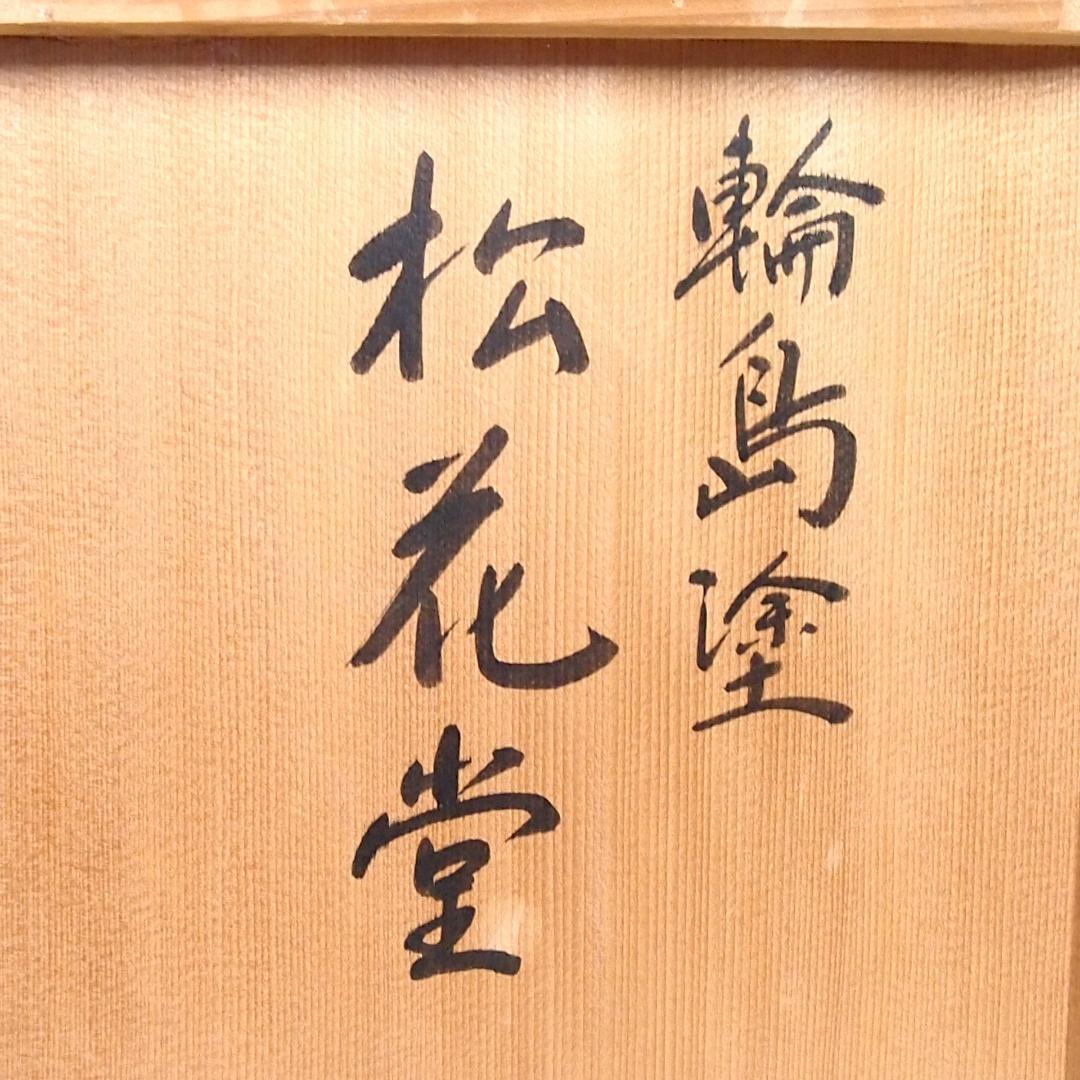 輪島塗
松花堂